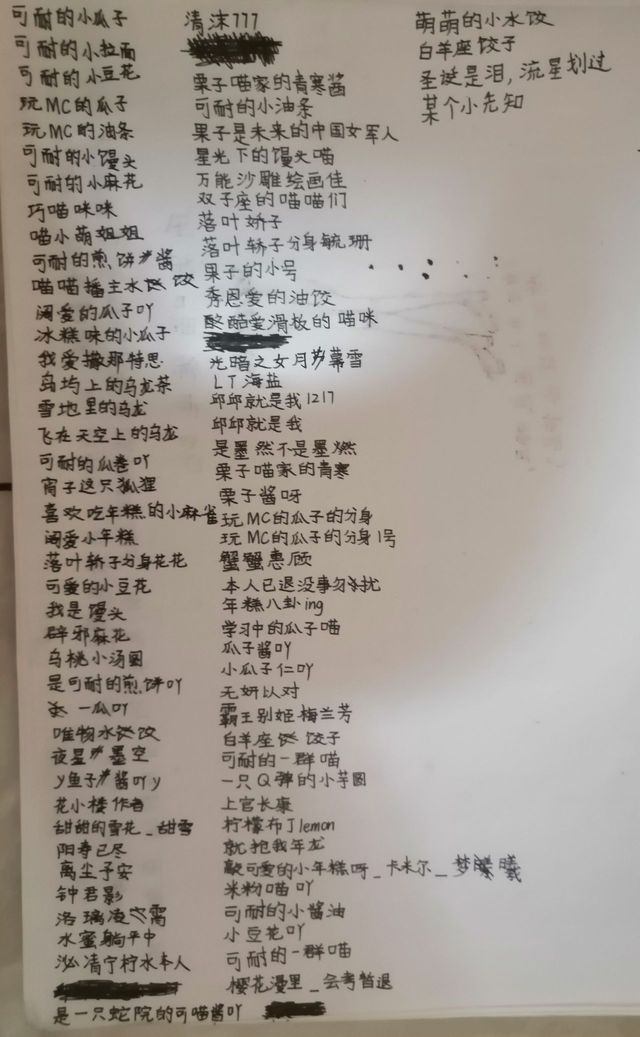 可耐的小瓜子
可耐的小拉面
可耐的小豆花
玩MC的瓜子
玩MC的油条
可耐的小馒头
可耐的小麻花
巧喵咪咪
喵小萌姐姐
可耐的煎饼#酱
喵喵播主水饺
阔爱的瓜子吖
冰糕味的小瓜子
我爱撒那特思
岛坞上的乌龙茶
雪地里的乌龙
飞在天空上的乌龙
可耐的瓜卷吖
宵子这只狐狸
喜欢吃年糕的小麻雀
阔爱小年糕
落叶轿子分身花花
可爱的小豆花
我是馒头
辟邪麻花
乌桃小汤圆
是可耐的煎饼吖
一瓜吖
唯物水饺
夜星#墨空
y鱼子#酱吖y
花小楼作者
甜甜的雪花_甜雪
阳寿已尽
离尘予安
钟君影
洛璃凌霄
水蜜躺平中
泌清宁柠水本人
是一只蛇院的可喵酱吖
清沫777
栗子喵家的青寒酱
可耐的小油条
果子是未来的中国女军人
星光下的馒头喵
万能沙雕绘画佳
双子座的喵喵们
落叶娇子
落叶轿子分身毓珊
果子的小号
秀恩爱的油饺
酷酷爱滑板的喵咪
光暗之女月#幕雪
LT海盐
邱邱就是我1217
邱邱就是我
是墨然不是墨燃
栗子喵家的青寒
栗子酱呀
玩MC的瓜子的分身
玩MC的瓜子的分身1号
蟹蟹惠顾
本人已退没事勿扰
年糕八卦ing
学习中的瓜子喵
瓜子酱吖
小瓜子仁吖
无妍以对
霸王别姬梅兰芳
白羊座饺子
可耐的一群喵
一只Q弹的小芋圆
上官长康
柠檬布丁lemon
就抱我年龙
可爱的小年糕呀_卡米尔_梦曦曦
米粉喵吖
可耐的小酱油
小豆花吖
可耐的一群喵
樱花漫里_会考暂退
萌萌的小水饺
白羊座饺子
圣诞是泪，流星划过
某个小先知